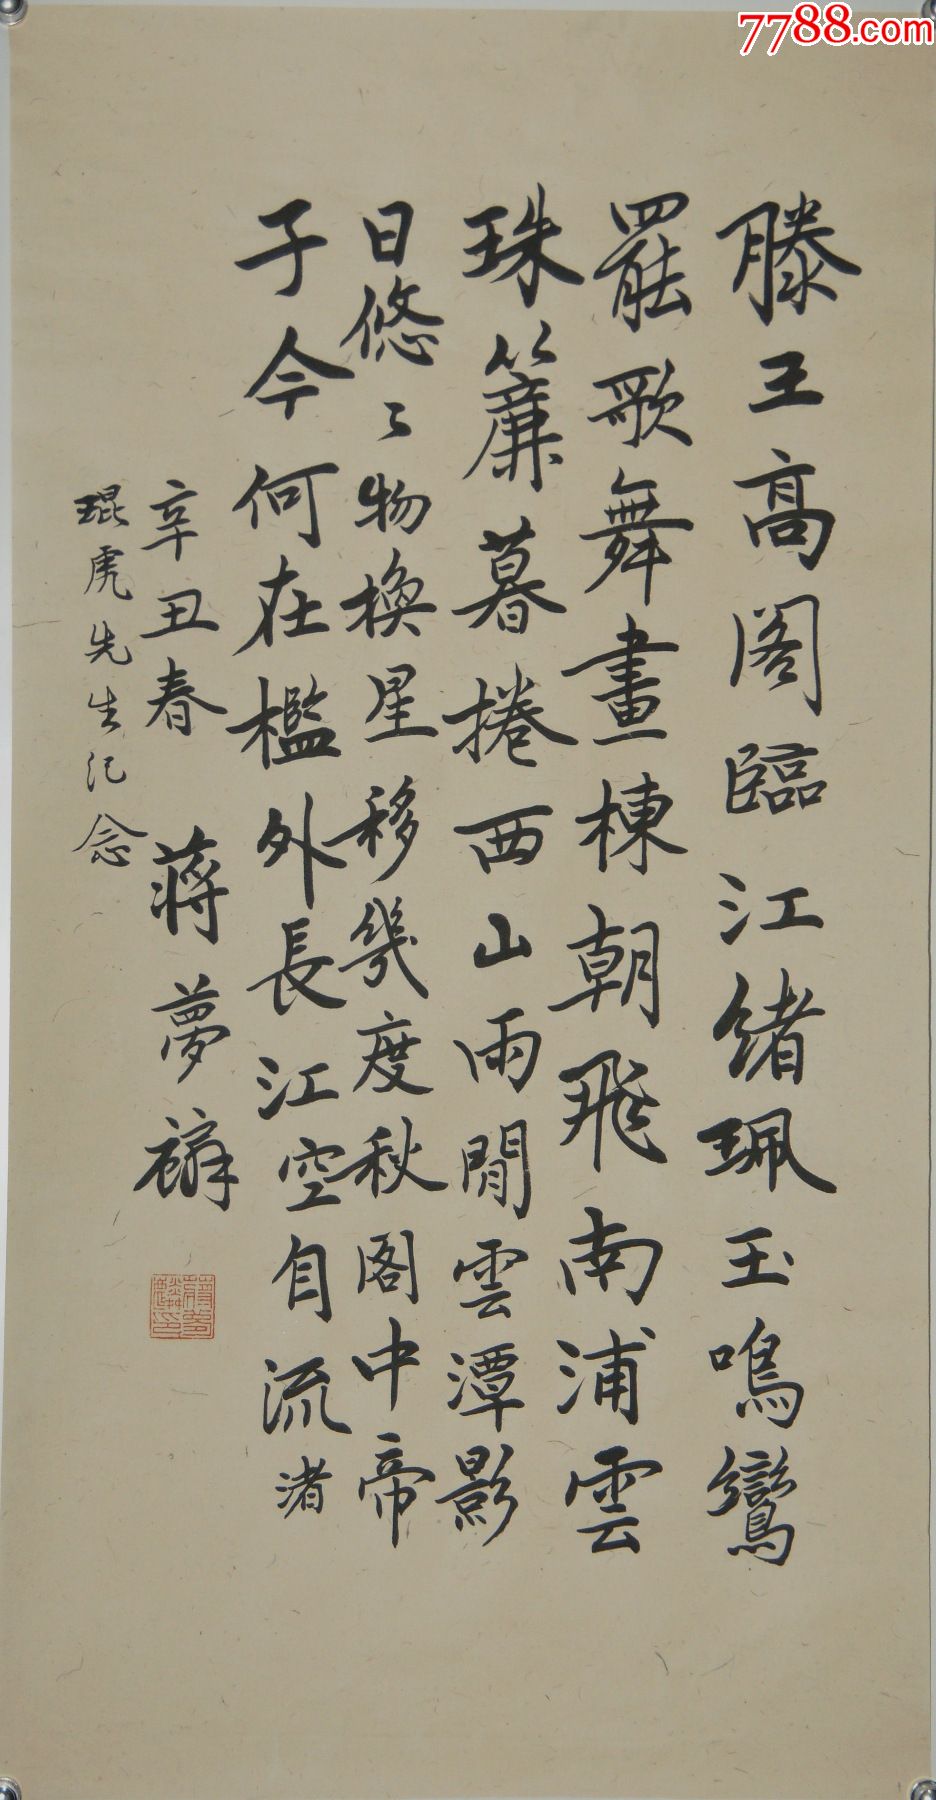 滕王高閣臨江緒珮玉鳴鸞
罷歌舞畫棟朝飛南浦雲
珠簾暮捲西山雨閒雲潭影
日悠々物換星移幾度秋閣中帝
子今何在檻外長江空自流渚
辛丑春 蔣夢麟
琨虎先生紀念
蔣夢麟印
7788.com